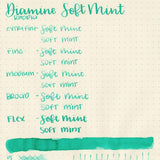 Diamine Soft Mint
Extra Fine - Soft Mint
Soft Mint
Fine - Soft Mint
Soft Mint
Medium - Soft Mint
Soft Mint
Broad - Soft Mint
Soft Mint
Flex - Soft Mint
Soft Mint